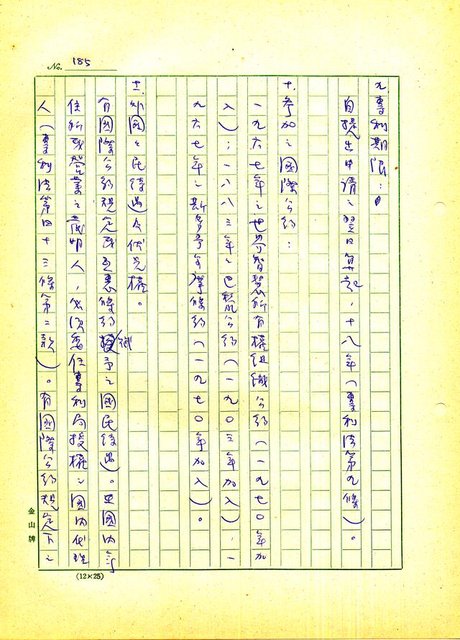 No. 185
九、專利期限：
自提出申請之翌日算起，十八年（專利法第九條）。
十、參加之國際公約：
一九六七年之世界智慧所有權組織公約（一九七〇年加
入）；一八八三年之巴黎公約（一九〇三年加入）；一
九六七年之斯德哥爾摩條約（一九七〇年加入）。
十一、外國之民待遇及優先權。
有國際公約規定或互惠條約授予之國民待遇。在國內無
住所或營業之發明人，必須委任專利局授權之國內代理
人（專利法第四十三條第二款）。有國際公約規定下之
金山牌
(12×25)